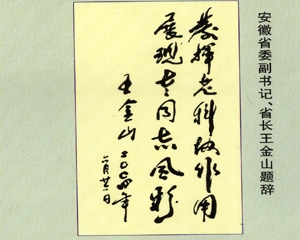 安徽省委副书记、省长王金山题辞
发挥老科协作用
展现老同志风彩
王金山 二〇〇四年
月 日